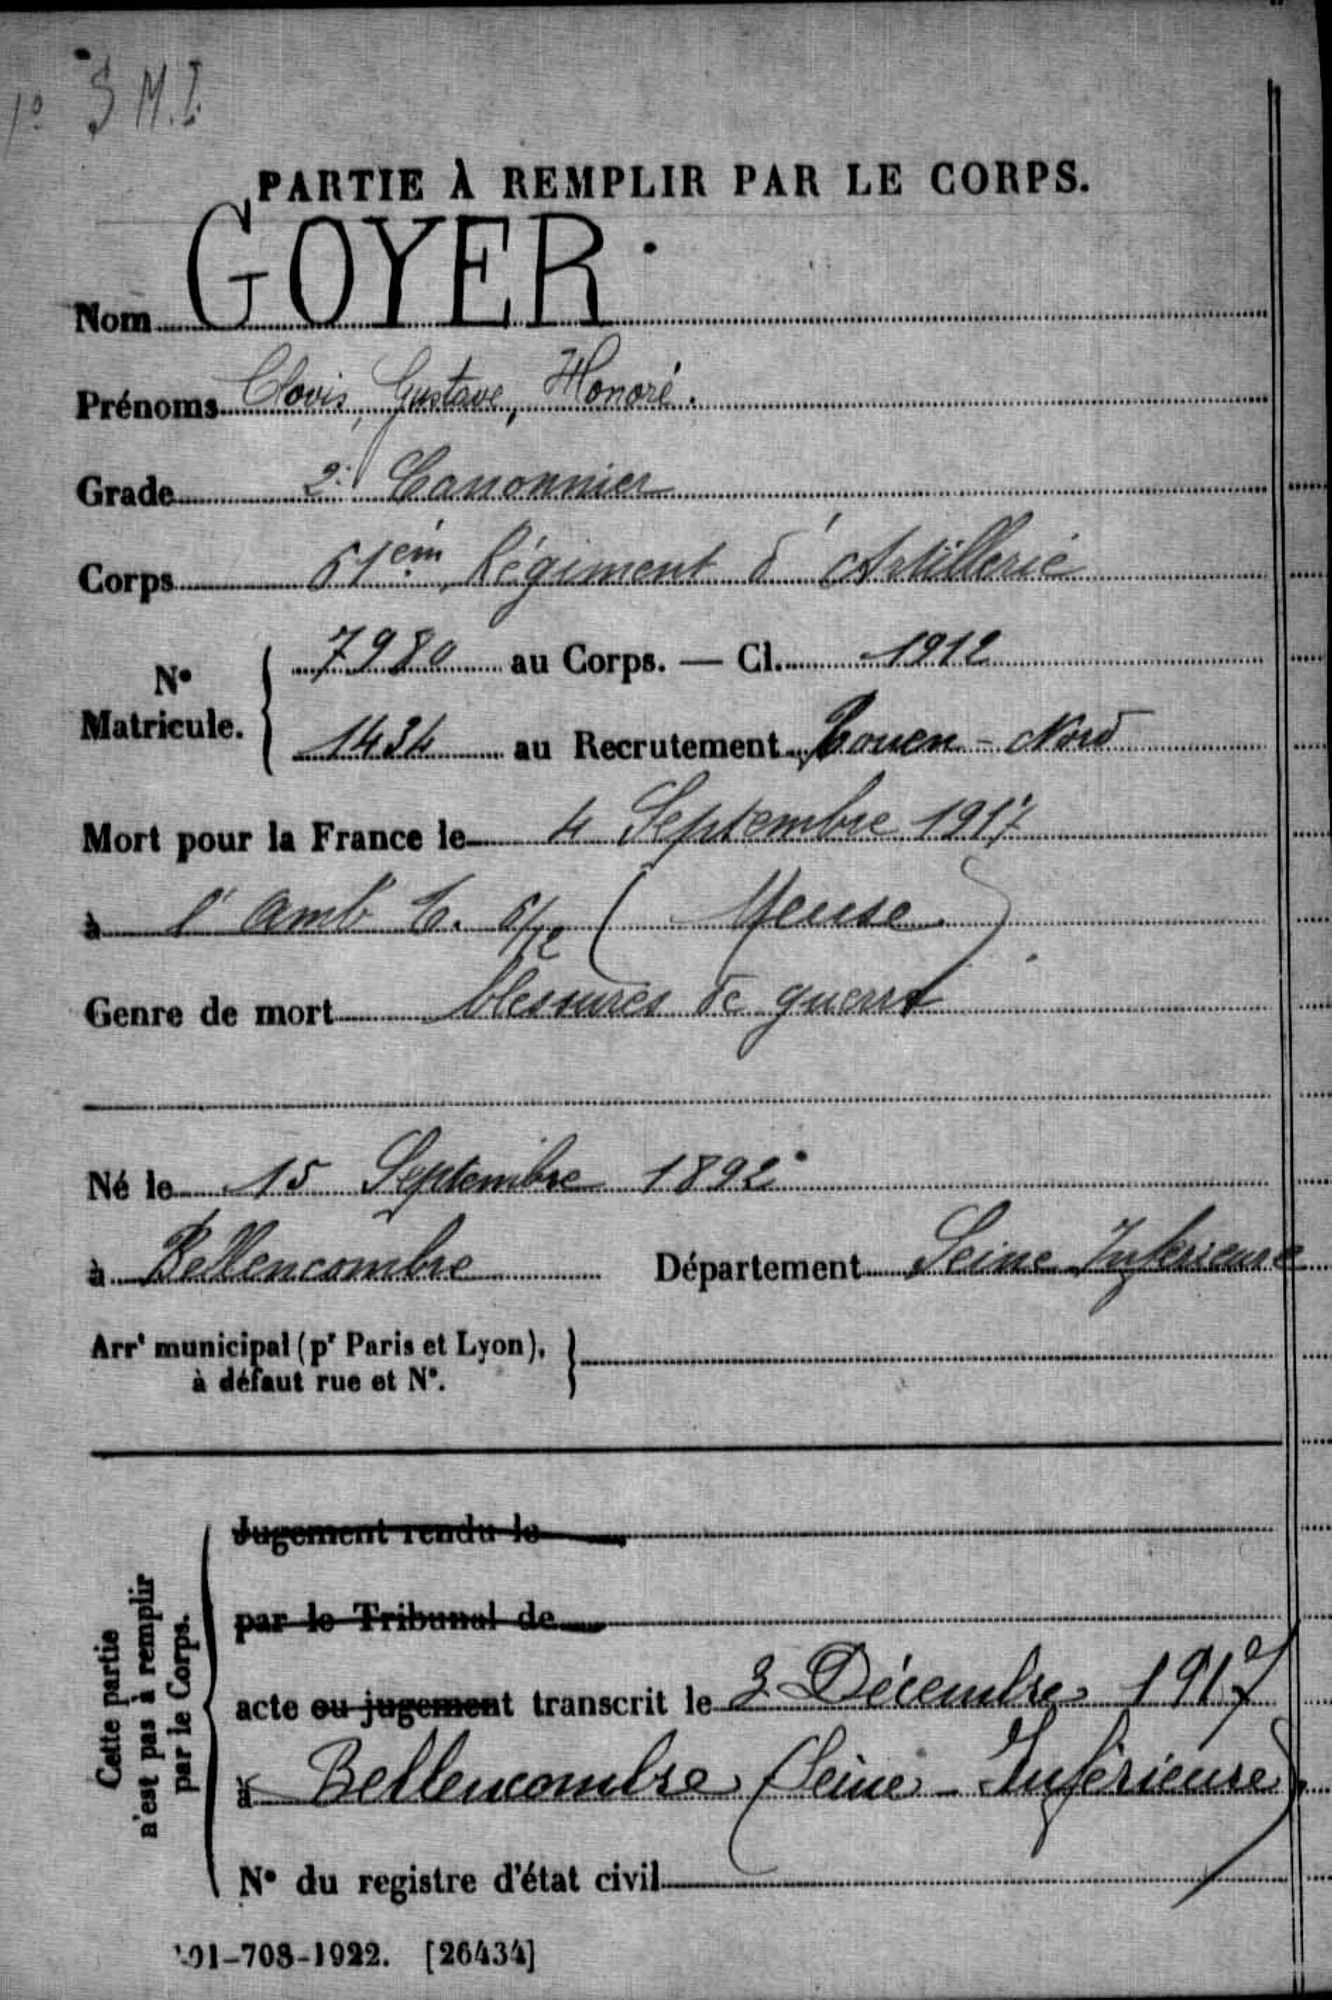 1º S M.I.
PARTIE À REMPLIR PAR LE CORPS.
Nom GOYER.
Prénoms Clovis, Gustave, Honoré.
Grade 2e Canonnier
Corps 61em Régiment d'Artillerie
No Matricule. { 7980 au Corps. — Cl. 1912
1434 au Recrutement Rouen - Nord
Mort pour la France le 4 Septembre 1917
à l'amb (Meuse).
Genre de mort blessures de guerre
Né le 15 Septembre 1892
à Bellencombre Département Seine Inférieure
Arrt municipal (pr Paris et Lyon),
à défaut rue et No.
Cette partie
n'est pas à remplir
par le Corps.
Jugement rendu le
par le Tribunal de
acte ou jugement transcrit le 3 Décembre 1917
à Bellencombre (Seine-Inférieure)
No du registre d'état civil
101-708-1922. [26434]